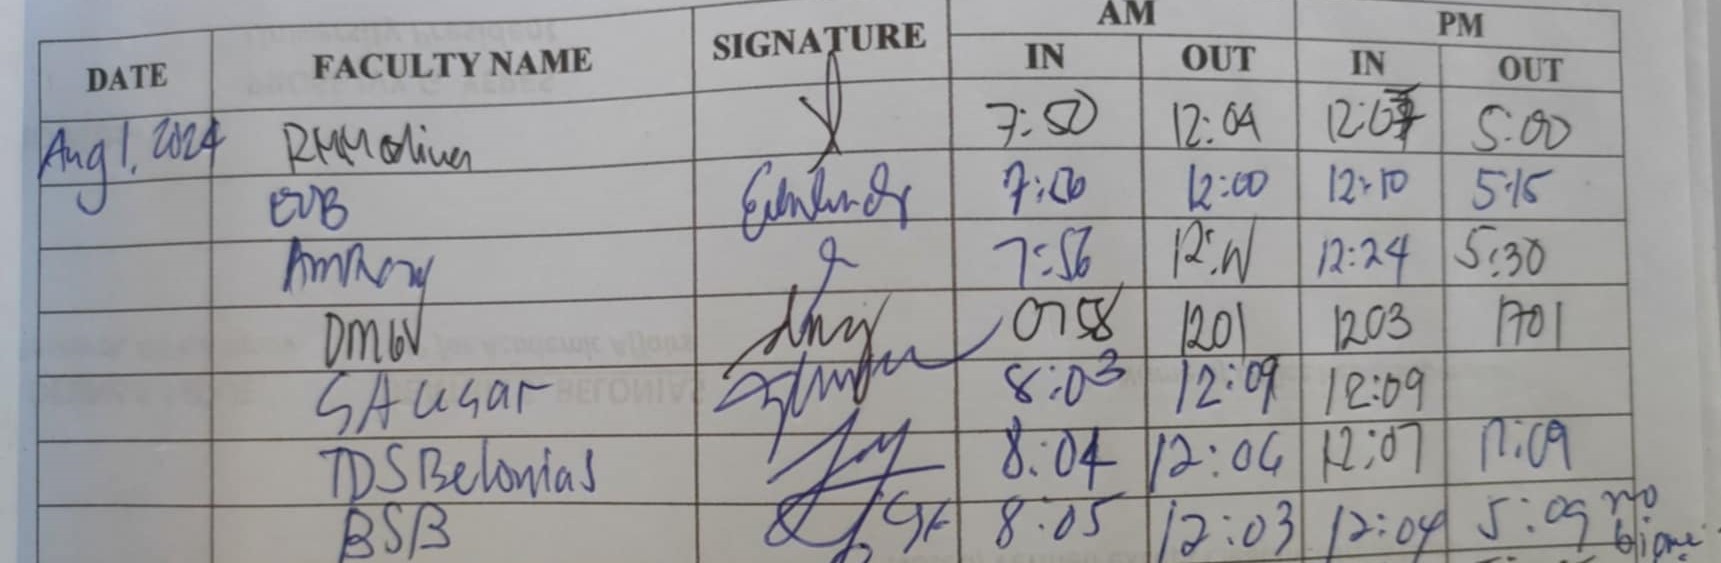 AM PM
DATE FACULTY NAME SIGNATURE IN OUT IN OUT
Aug 1, 2024 RMMolina 7:50 12:04 12:07 5:00
EUB 7:50 12:00 12:10 5:15
AmRoy 7:56 12:24 5:30
DMW 0758 1201 1203 1701
SAugar 8:03 12:09 12:09
TDSBelonias 8:04 12:06 12:07 17:09
BSB 8:05 12:03 12:04 5:09 no